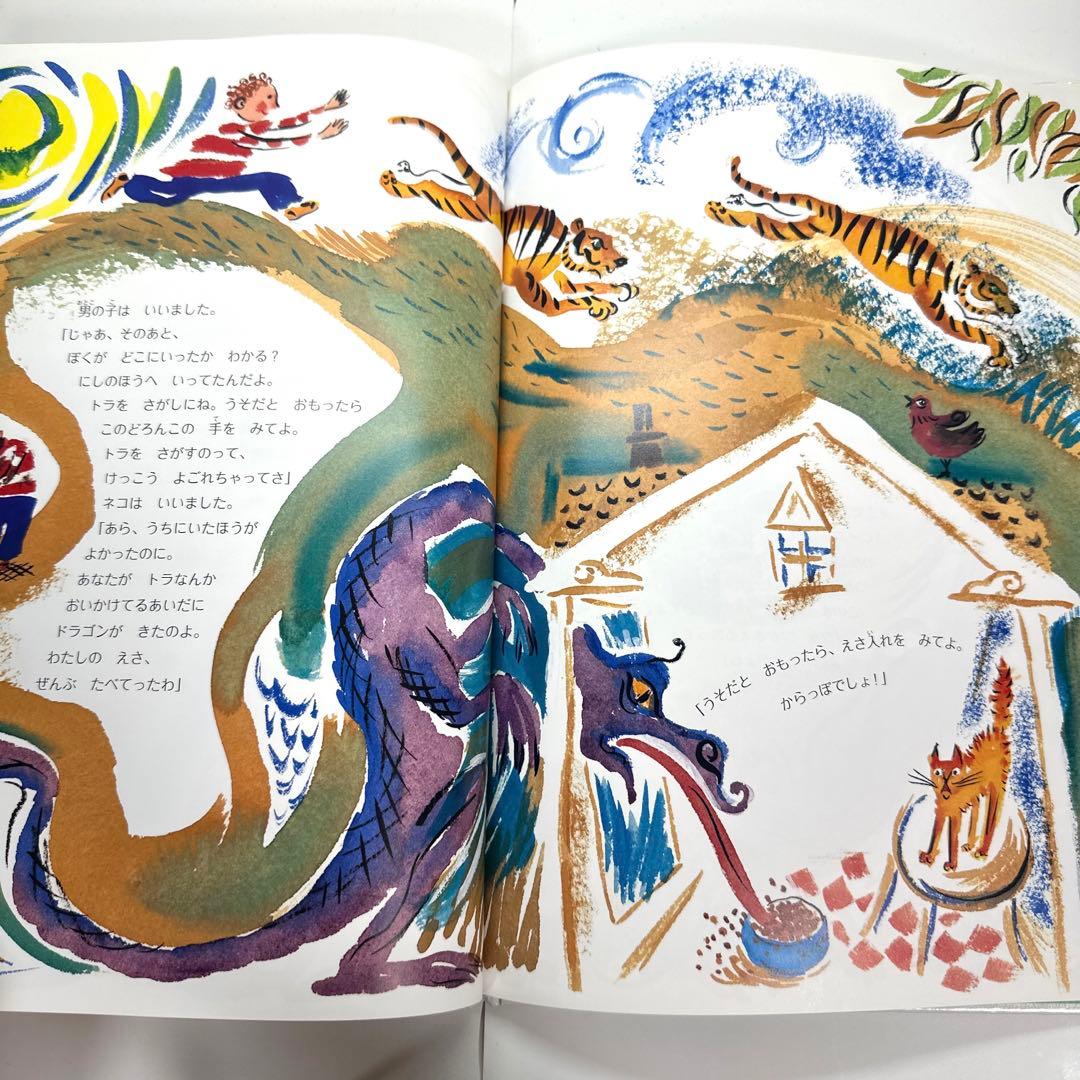 男の子は　いいました。
「じゃあ、そのあと、
ぼくが　どこにいったか　わかる？
にしのほうへ　いってたんだよ。
トラを　さがしにね。うそだと　おもったら
このどろんこの　手を　みてよ。
トラを　さがすのって、
けっこう　よごれちゃってさ」
ネコは　いいました。
「あら、うちにいたほうが
よかったのに。
あなたが　トラなんか
おいかけてるあいだに
ドラゴンが　きたのよ。
わたしの　えさ、
ぜんぶ　たべてったわ」
「うそだと　おもったら、えさ入れを　みてよ。
からっぽでしょ！」